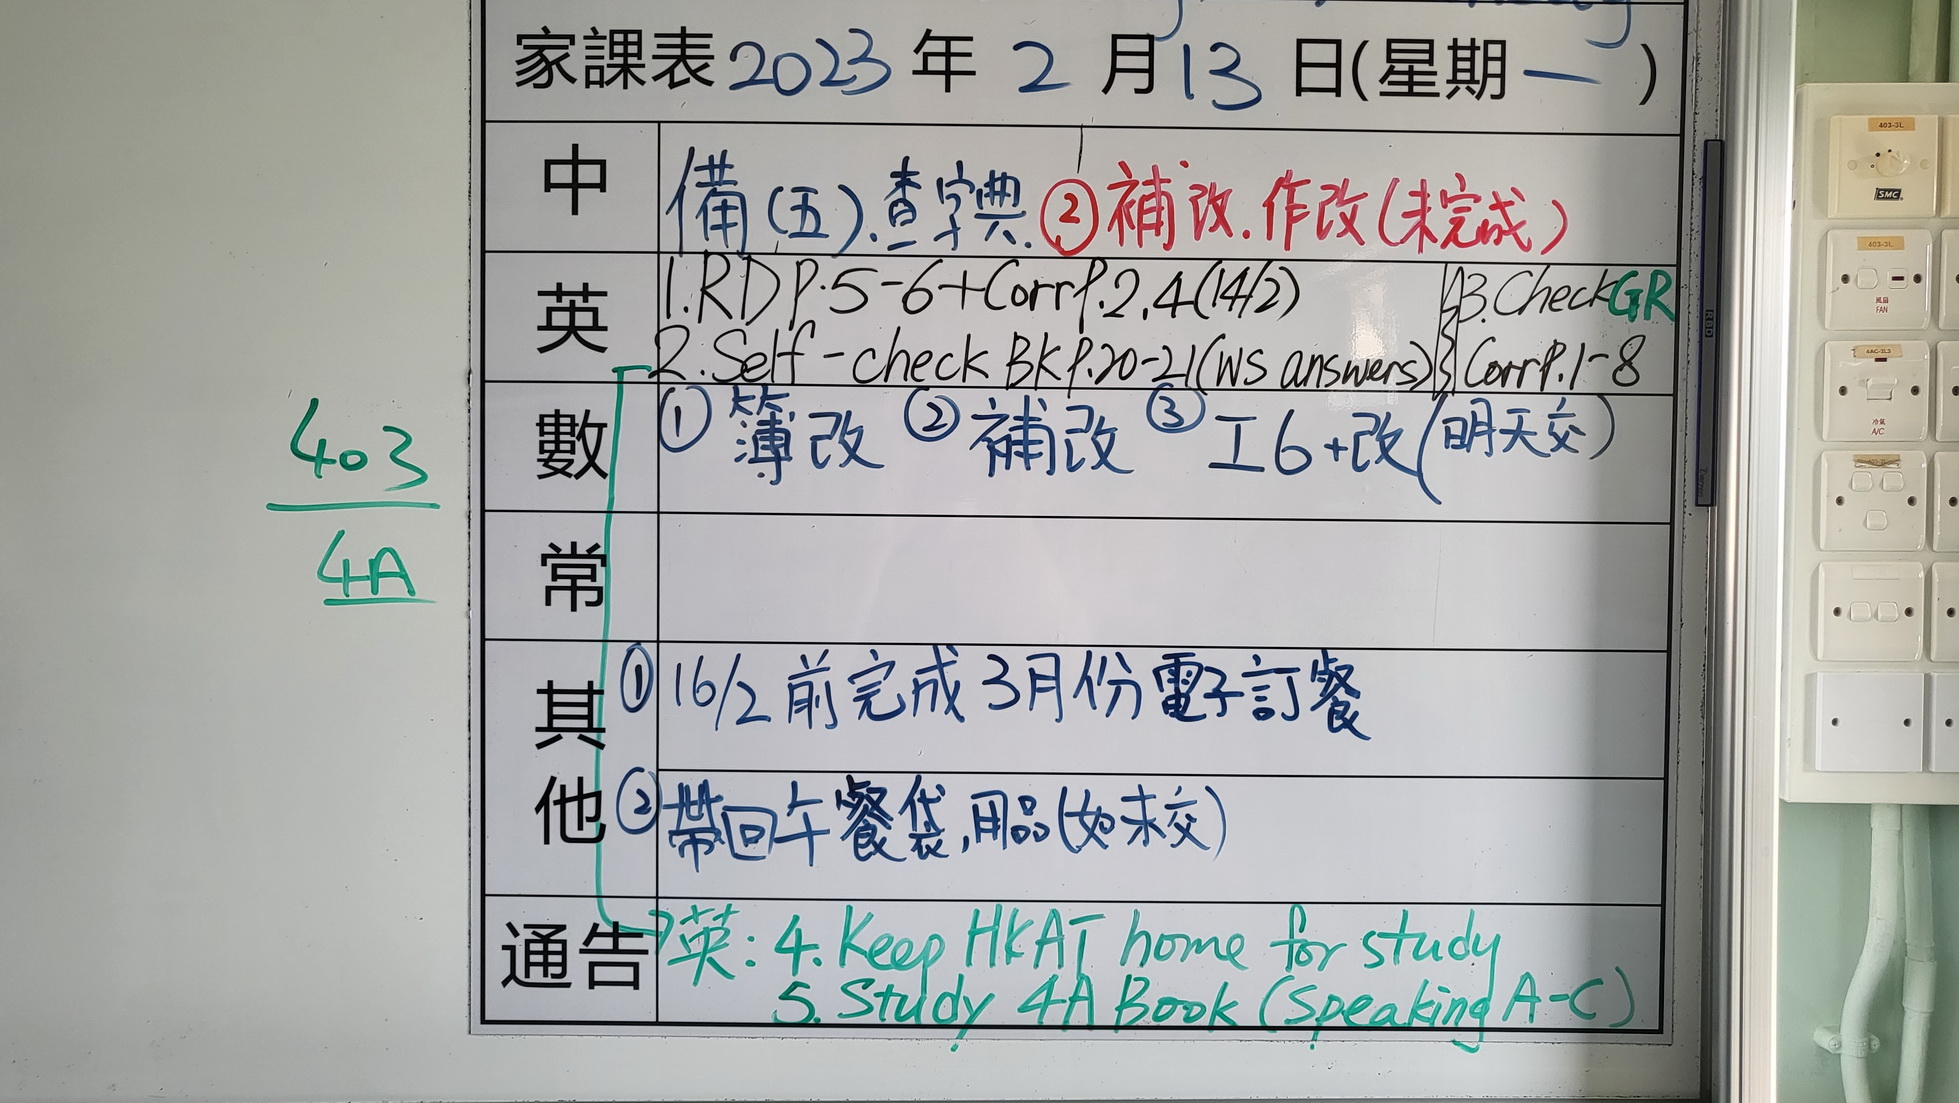 家課表 2023 年 2 月 13 日(星期一)
中
備(五).查字典. ②補改.作改(未完成)
英
1.RD P.5-6+Corr P.2,4(14/2)
2.Self-check BK P.20-21(WS answers)
3.Check GR
Corr P.1-8
數
①簿改 ②補改 ③工6+改(明天交)
常
其他
①16/2前完成3月份電子訂餐
②帶回午餐袋,用品(如未交)
通告
英: 4. Keep HKAT home for study
5. Study 4A Book (Speaking A-C)
403
4A
403-3L
SMC
403-3L
風扇
FAN
4AC-3L3
冷氣
A/C